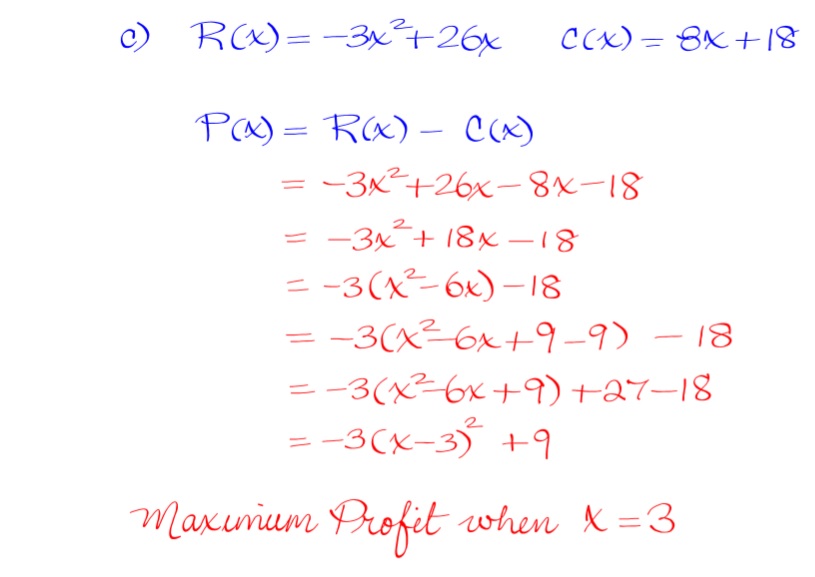 c) R(x) = -3x²+26x C(x) = 8x+18
P(x) = R(x) - C(x)
= -3x²+26x-8x-18
= -3x²+18x-18
= -3(x²-6x)-18
= -3(x²-6x+9-9) - 18
= -3(x²-6x+9)+27-18
= -3(x-3)² +9
Maximum Profit when x=3